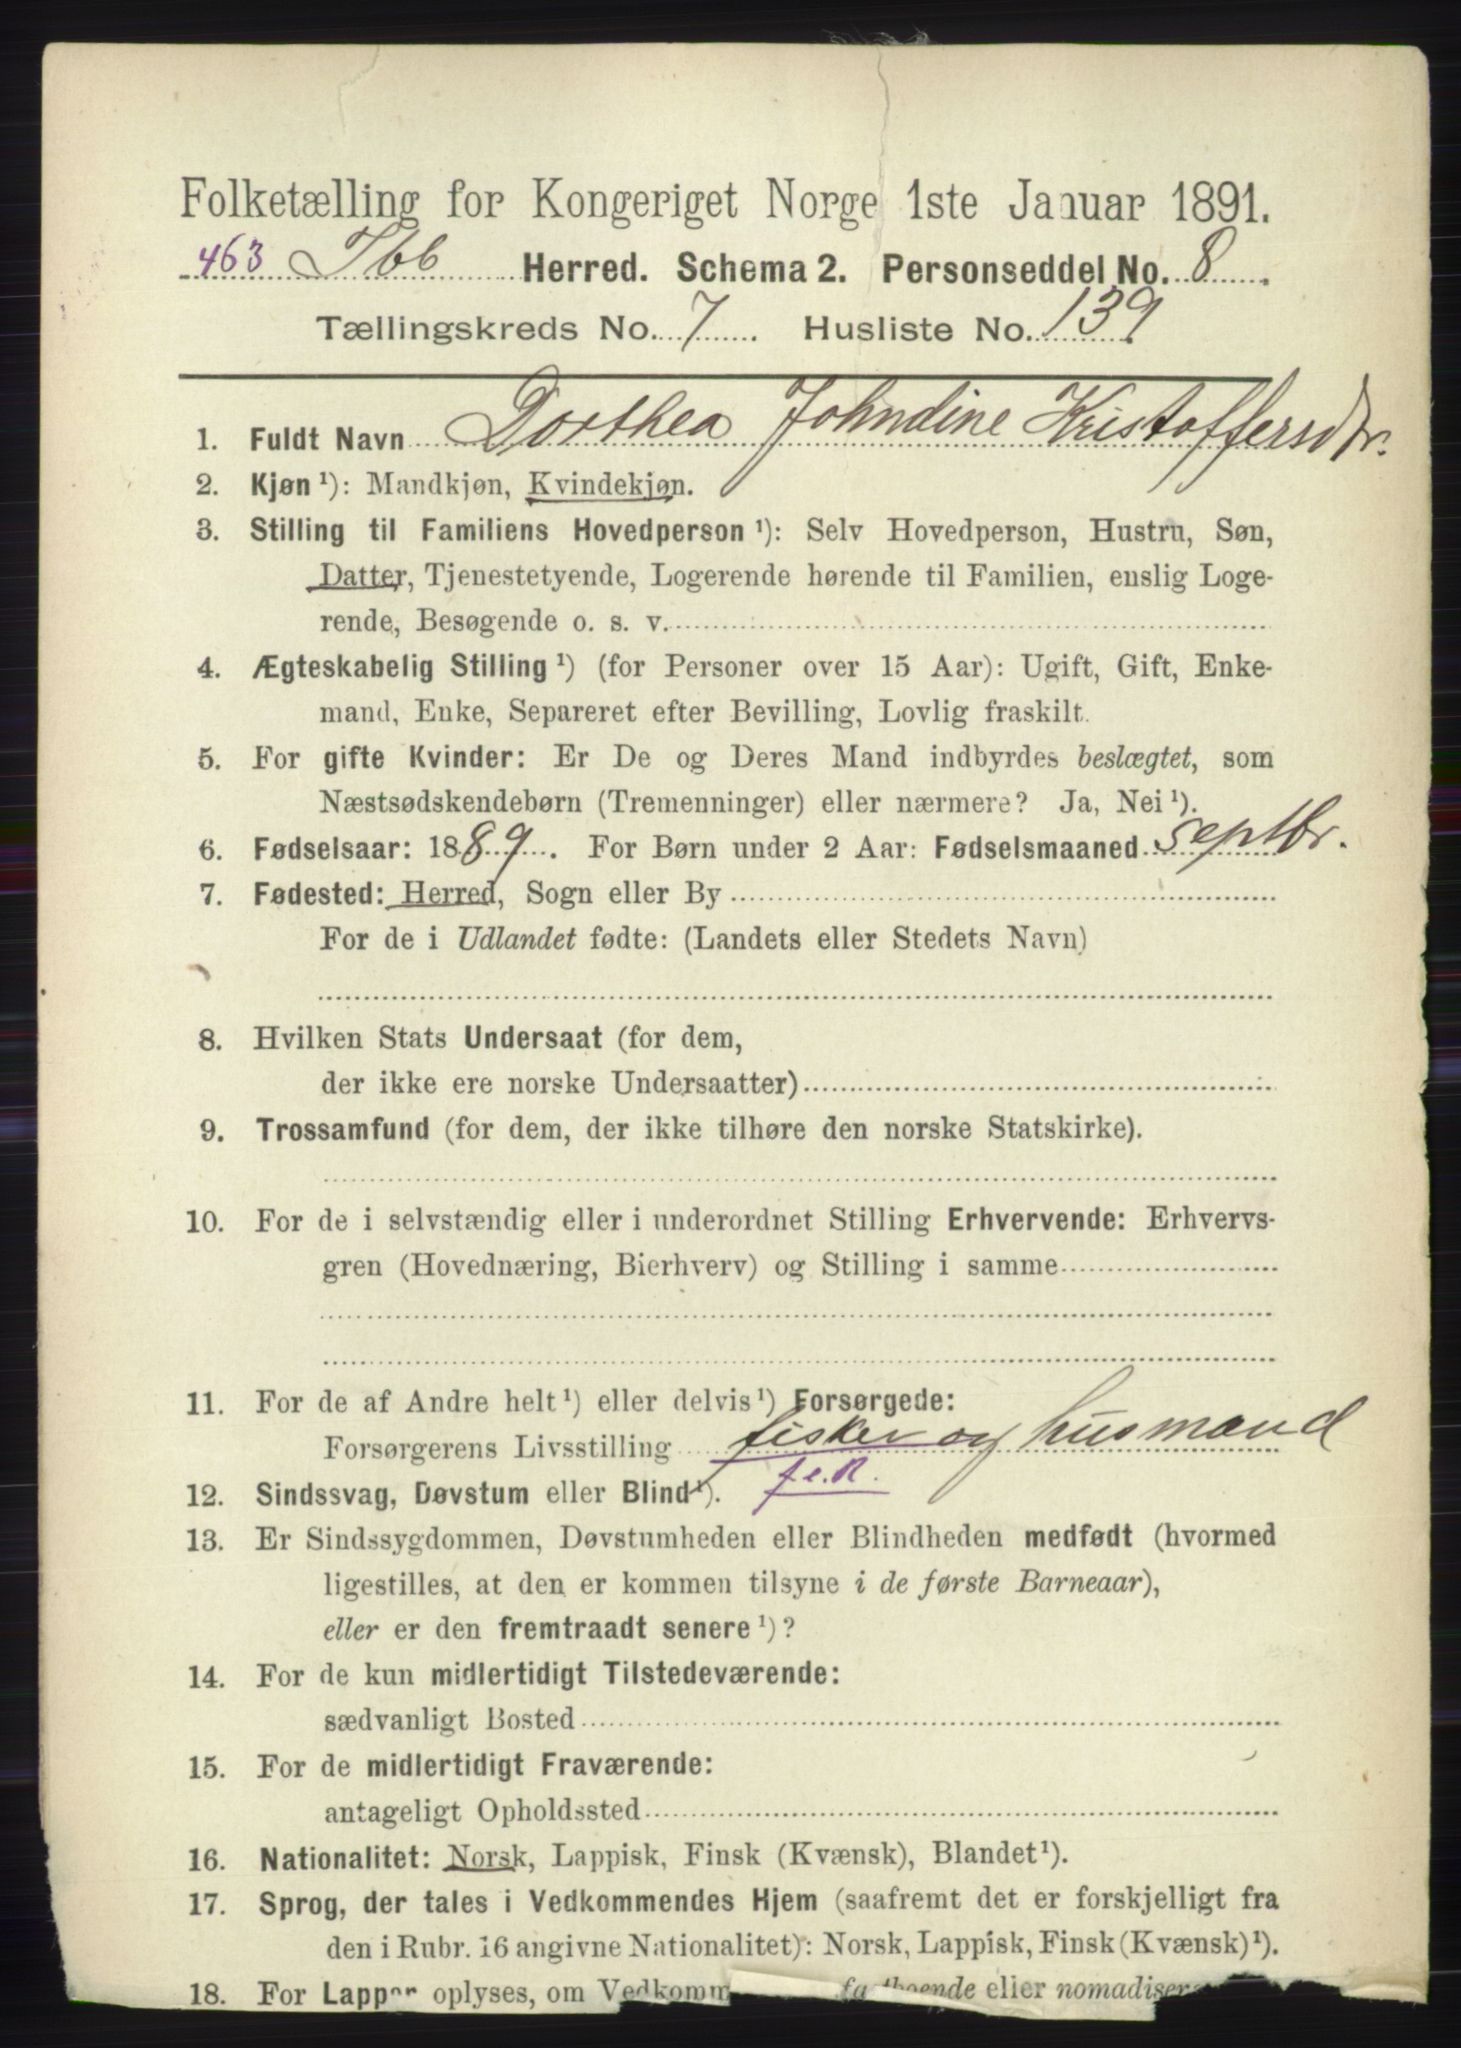 Folketælling for Kongeriget Norge 1ste Januar 1891.
463 Ibb Herred. Schema 2. Personseddel No. 8
Tællingskreds No. 7. Husliste No. 139
1. Fuldt Navn Dorthea Johndine Kristoffersdtr.
2. Kjøn ¹): Mandkjøn, Kvindekjøn.
3. Stilling til Familiens Hovedperson ¹): Selv Hovedperson, Hustru, Søn,
Datter, Tjenestetyende, Logerende hørende til Familien, enslig Loge-
rende, Besøgende o. s. v.
4. Ægteskabelig Stilling ¹) (for Personer over 15 Aar): Ugift, Gift, Enke-
mand, Enke, Separeret efter Bevilling, Lovlig fraskilt.
5. For gifte Kvinder: Er De og Deres Mand indbyrdes beslægtet, som
Næstsødskendebørn (Tremenninger) eller nærmere? Ja, Nei ¹).
6. Fødselsaar: 1889. For Børn under 2 Aar: Fødselsmaaned Septbr.
7. Fødested: Herred, Sogn eller By
For de i Udlandet fødte: (Landets eller Stedets Navn)
8. Hvilken Stats Undersaat (for dem,
der ikke ere norske Undersaatter)
9. Trossamfund (for dem, der ikke tilhøre den norske Statskirke).
10. For de i selvstændig eller i underordnet Stilling Erhvervende: Erhvervs-
gren (Hovednæring, Bierhverv) og Stilling i samme
11. For de af Andre helt ¹) eller delvis ¹) Forsørgede:
Forsørgerens Livsstilling fisker og husmand
f.e.R.
12. Sindssvag, Døvstum eller Blind ¹).
13. Er Sindssygdommen, Døvstumheden eller Blindheden medfødt (hvormed
ligestilles, at den er kommen tilsyne i de første Barneaar),
eller er den fremtraadt senere ¹)?
14. For de kun midlertidigt Tilstedeværende:
sædvanligt Bosted
15. For de midlertidigt Fraværende:
antageligt Opholdssted
16. Nationalitet: Norsk, Lappisk, Finsk (Kvænsk), Blandet ¹).
17. Sprog, der tales i Vedkommendes Hjem (saafremt det er forskjelligt fra
den i Rubr. 16 angivne Nationalitet): Norsk, Lappisk, Finsk (Kvænsk) ¹).
18. For Lapper oplyses, om Vedkomm fastboende eller nomadiser